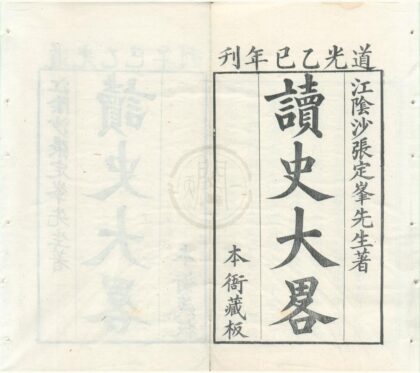 道光乙巳年刊
江陰沙張定峯先生著
讀史大畧
本衙藏板